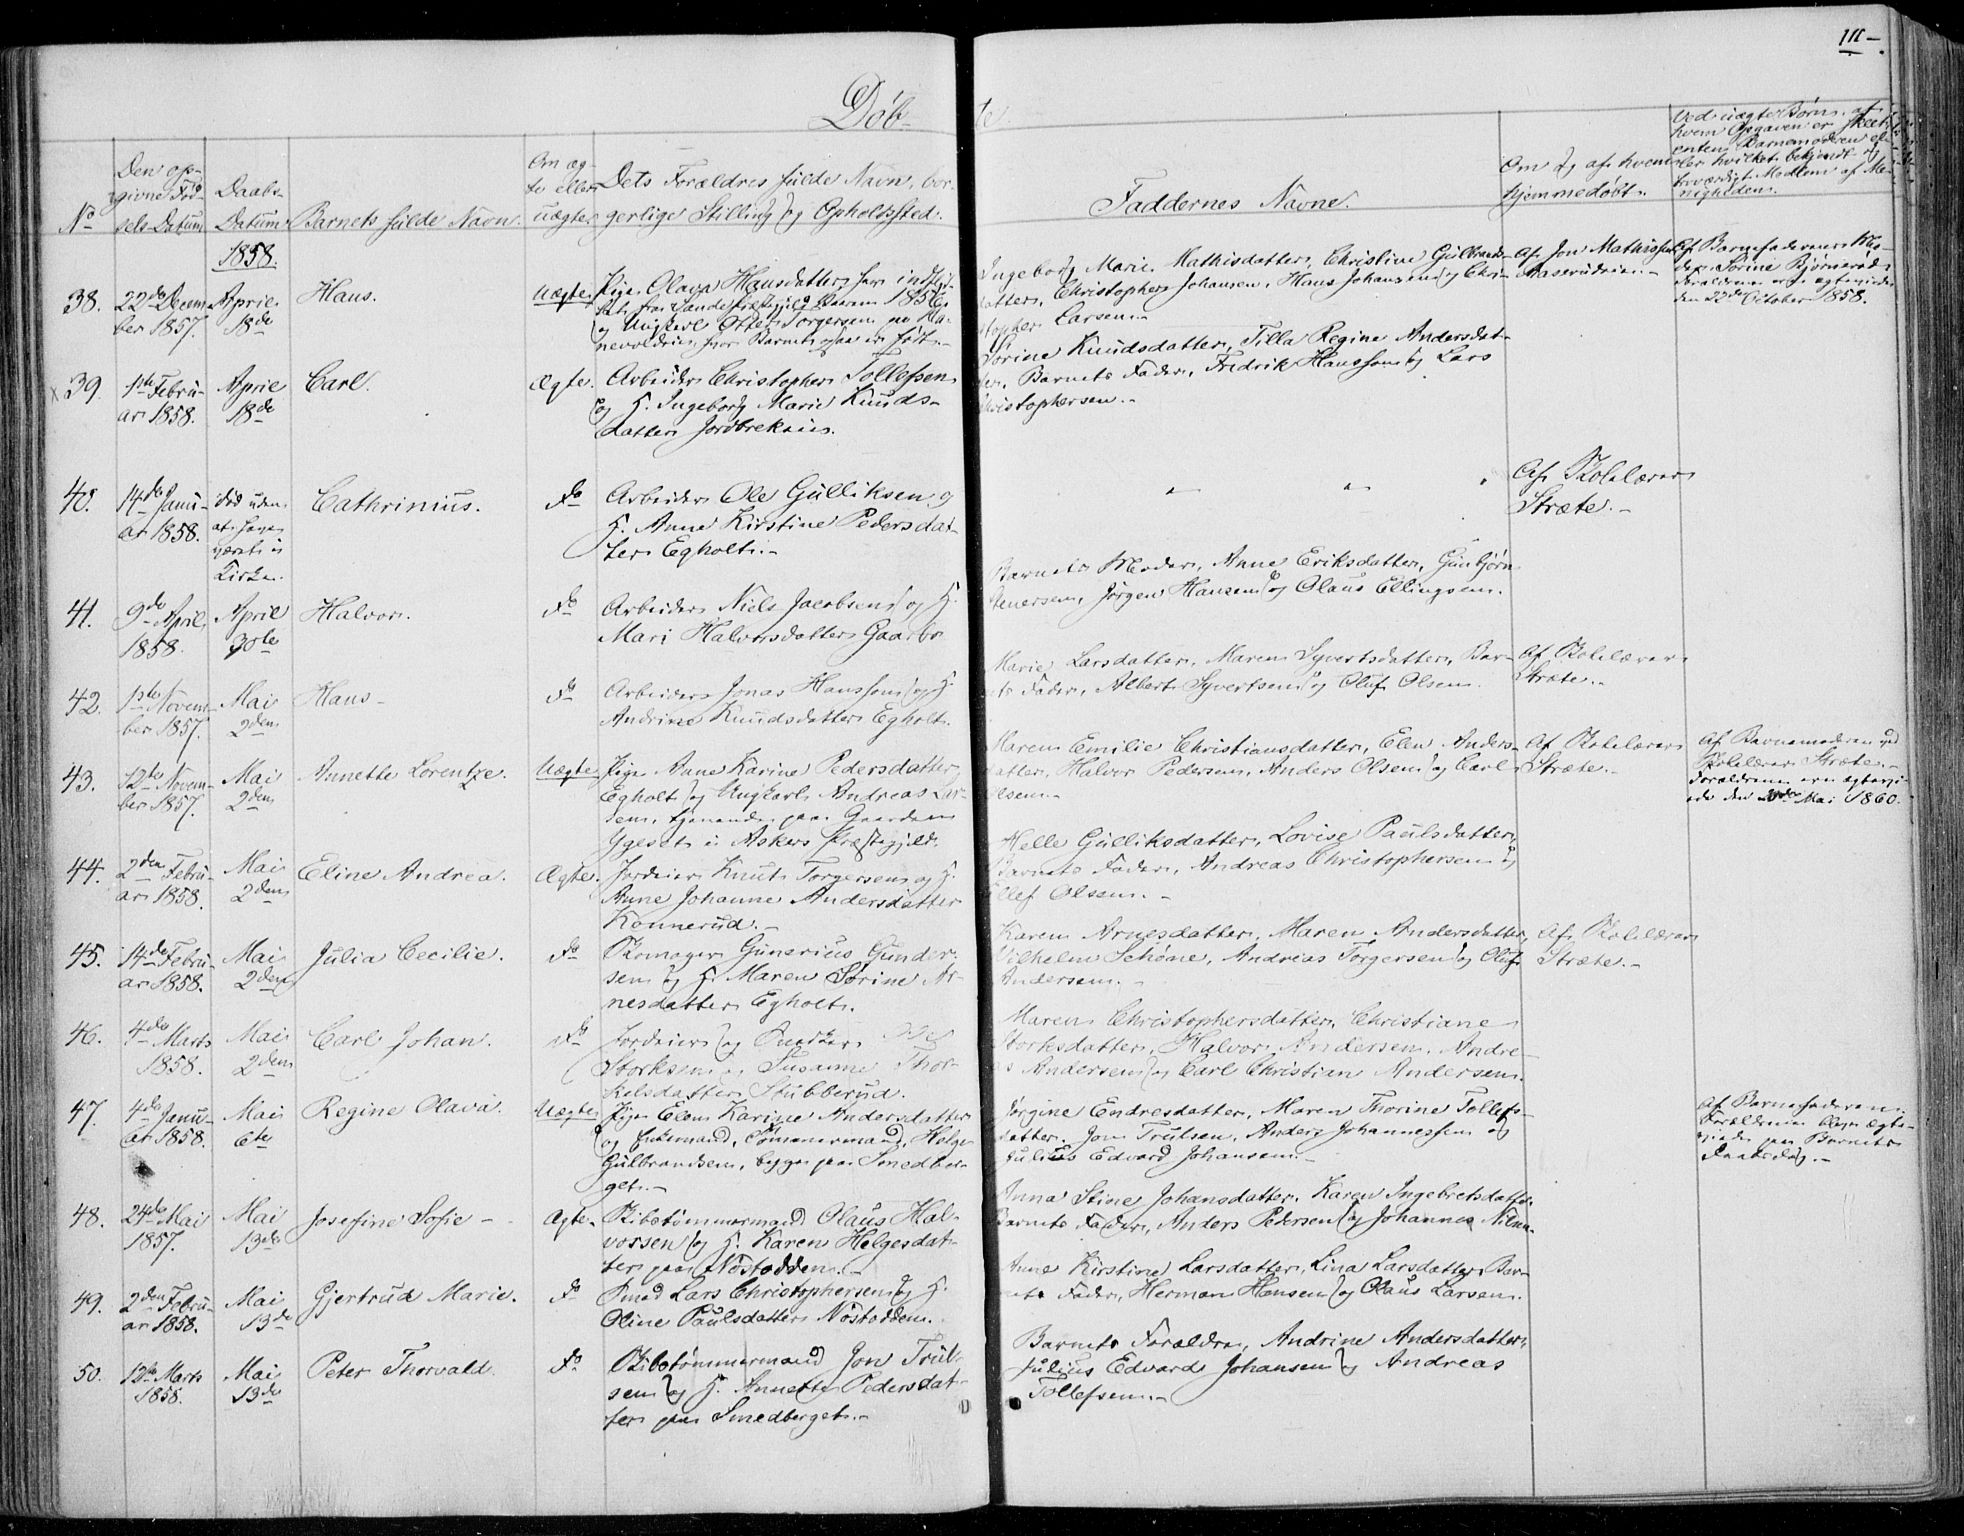 111 –
Døb-
te.
No
Den op-
givne Fød-
sels-Datum
Daabs-
Datum
Barnets fulde Navn.
Om æg-
te eller
uægte
Dets Forældres fulde Navn, bor-
gerlige Stilling og Opholdssted.
Faddernes Navne.
Om og af hvem
hjemmedøbt.
Ved uægte Børn, af
hvem Opgaven er skeet
enten Barnemoderen el-
ler hvilket bekjendt og
troværdigt Medlem af Me-
nigheden.
1858.
38.
22de Decem-
ber 1857.
April
18de
Hans.
Uægte
Pige Olava Hansdatter, her indflyt-
tet fra Sande Præstegjeld Høsten 1856
og Ungkarl Otter Torgersen
hvor Barnet ogsaa er født.
Ingeborg Marie Mathisdatter, Christine Gulbrands-
datter, Christopher Johansen, Hans Johansen og Chri-
stopher Larsen.
Af Jon Mathissen
Aaserudeie.
Af Barnefaderens Mo-
der Sørine Bjørnerød
Forældrene ere ægteviede
den 22de October 1858.
39.
1ste Febru-
ar 1858.
April
18de
Carl.
Ægte.
Arbeider Christopher Tollefsen
og H. Ingeborg Marie Knuds-
datter Jordbrekeie.
Sørine Knudsdatter, Tilla Regine Andersdat-
ter, Barnets Fader, Fredrik Hanssen og Lars
Christophersen.
40.
14de Janu-
ar 1858.
død uden
at have
været i
Kirke.
Cathrinius.
do
Arbeider Ole Gulliksen og
H. Anne Kirstine Pedersdat-
ter Egholt.
Af Skolelærer
Stræte.
41.
9de April
1858.
April
30te
Halvor.
do
Arbeider Niels Jacobsen og H.
Mari Halvorsdatter Gaarbo
Barnets Moder, Anne Eriksdatter, Gunbjørn
Stenersen, Jørgen Hansen og Olaus Ellingsen.
42.
1ste Novem-
ber 1857.
Mai
2den
Hans
do
Arbeider Jonas Hanssen og H.
Andrine Knudsdatter Egholt.
Marie Larsdatter, Maren Syvertsdatter, Bar-
nets Fader, Albert Syvertsen og Oluf Olsen.
Af Skolelærer
Stræte.
43.
12te Novem-
ber 1857.
Mai
2den
Annette Lorentze.
Uægte
Pige Anne Karine Pedersdatter
Egholt og Ungkarl Andreas Lar-
sen, tjenende paa Gaarden
Ygeset i Askers Præstegjeld.
Maren Emilie Christiansdatter, Elen Anders-
datter, Halvor Pedersen, Anders Olsen og Carl
Olsen.
Af Skolelærer
Stræte.
Af Barnemoderen ved
Skolelærer Stræte.
Forældrene ere ægtevi-
ede den Mai 1860.
44.
2den Febru-
ar 1858.
Mai
2den
Eline Andrea.
Ægte.
Jordeier Knut Torgersen og H.
Anne Johanne Andersdatter
Konnerud.
Helle Gulliksdatter, Lovise Paulsdatter,
Barnets Fader, Andreas Christophersen og
Ellef Olsen.
45.
14de Febru-
ar 1858.
Mai
2den
Julia Cecilie.
do
Skomager Gunerius Gunder-
sen og H. Maren Sørine Ar-
nesdatter Egholt.
Karen Arnesdatter, Maren Andersdatter,
Vilhelm Schøne, Andreas Torgersen og Oluf
Andersen.
Af Skolelærer
Stræte.
46.
4de Marts
1858.
Mai
2den
Carl Johan.
do
Jordeier og Snedker
Storksen og Susanne Thor-
kelsdatter Stubberud.
Maren Christophersdatter, Christiane
Storksdatter, Halvor Andersen, Andre-
as Andersen og Carl Christian Andersen.
47.
4de Janu-
ar 1858.
Mai
6te
Regine Olava.
Uægte
Pige Elen Karine Andersdatter
og Enkemand, Tømmermand Helge
Gulbrandsen, begge paa Smedber-
get.
Jørgine Endresdatter, Maren Thorine Tollefs-
datter, Jon Trulsen, Anders Johannessen og
Julius Edvard Johansen.
Af Barnefaderen.
Forældrene bleve ægte-
viede paa Barnets
Daabsdag.
48.
24de Mai
1857.
Mai
13de
Josefine Sofie
Ægte
Skibstømmermand Olaus Hal-
vorsen og H. Karen Helgesdat-
ter paa Nøstodden.
Anna Stine Johansdatter, Karen Ingebretsdatter
Barnets Fader, Anders Pedersen og Johannes Nilsen.
49.
2den Febru-
ar 1858.
Mai
13de
Gjertrud Marie.
do
Smed Lars Christophersen og H.
Oline Paulsdatter Nøstodden.
Anne Kirstine Larsdatter, Lina Larsdatter, Bar-
nets Fader, Herman Hansen og Olaus Larsen.
50.
12te Marts
1858.
Mai
13de
Peter Thorvald.
do
Skibstømmermand Jon Trul-
sen og H. Annette Pedersdat-
ter paa Smedberget.
Barnets Forældre, Andrine Andersdatter,
Julius Edvard Johansen og Andreas
Tollefsen.